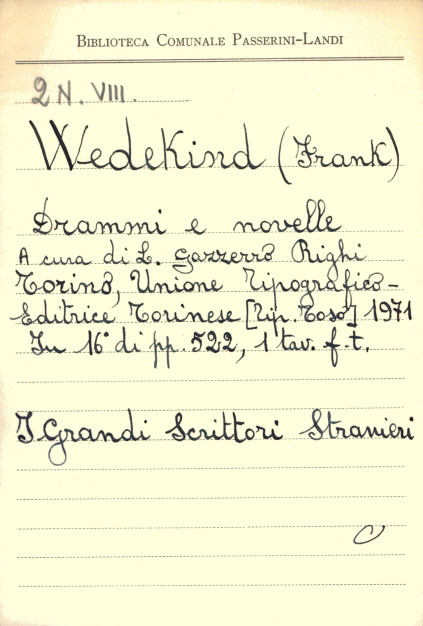 BIBLIOTECA COMUNALE PASSERINI-LANDI
2 N. VIII.
Wedekind (Frank)
Drammi e novelle
A cura di L. Gazzerro Righi
Torino, Unione Tipografico-
Editrice Torinese [Tip. Toso] 1971
In 16° di pp. 522, 1 tav. f. t.
I Grandi Scrittori Stranieri